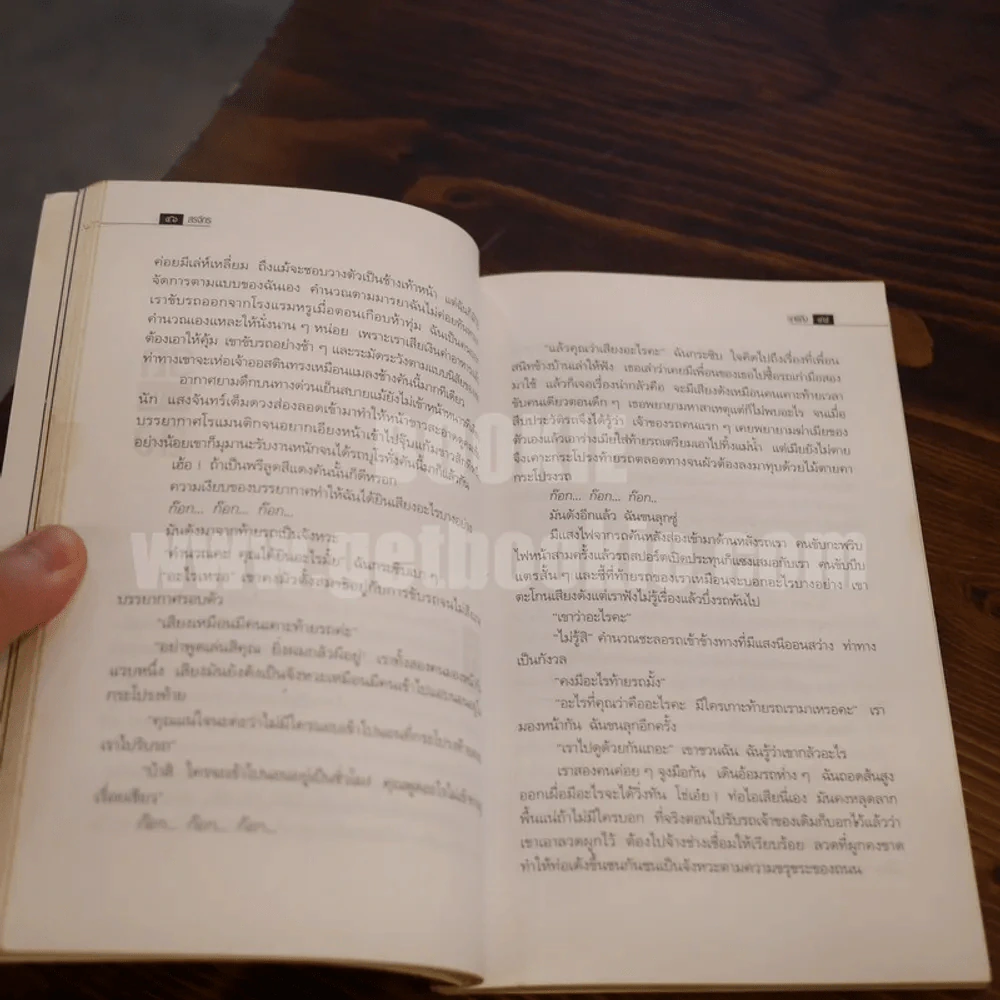 ๕๖ สรจักร
ค่อยมีเล่ห์เหลี่ยม ถึงแม้จะชอบวางตัวเป็นช้างเท้าหน้า
จัดการตามแบบของฉันเอง คำนวณตามมารยาฉันไม่ค่อยทัน
เราขับรถออกจากโรงแรมหรูเมื่อตอนเกือบห้าทุ่ม
คำนวณเองแหละให้นั่งนาน ๆ หน่อย เพราะเราเสียเงินค่าอาหาร
ต้องเอาให้คุ้ม เขาขับรถอย่างช้า ๆ และระมัดระวังตามแบบนิสัยของ
ท่าทางเขาจะเห่อเจ้าออสตินทรงเหมือนแมลงช้างคันนี้มากทีเดียว
อากาศยามดึกบนทางด่วนเย็นสบายแม้ยังไม่เข้าหน้าหนาวดี
นัก แสงจันทร์เต็มดวงส่องลอดเข้ามาทำให้หน้าขาว
บรรยากาศโรแมนติกจนอยากเอียงหน้าเข้าไปจุ๊บแก้มขาวสักที
อย่างน้อยเขาก็มุมานะรับงานหนักจนได้รถบุโรทั่งคันนี้มาก็แล้วกัน
เฮ้อ ! ถ้าเป็นพรีลูดสีแดงคันนั้นก็ดีหรอก
ความเงียบของบรรยากาศทำให้ฉันได้ยินเสียงอะไรบางอย่าง
ก๊อก... ก๊อก... ก๊อก...
มันดังมาจากท้ายรถเป็นจังหวะ
“คำนวณคะ คุณได้ยินอะไรมั้ย” ฉันกระซิบเบา ๆ
“อะไรเหรอ” เขาคงมัวตั้งสมาธิอยู่กับการขับรถจนไม่
บรรยากาศรอบตัว
“เสียงเหมือนมีคนเคาะท้ายรถค่ะ”
“อย่าพูดเล่นสิคุณ ยิ่งผมกลัวผีอยู่” เราทั้งสองคนมองหน้ากัน
แวบหนึ่ง เสียงมันยังดังเป็นจังหวะเหมือนมีคนเข้าไปแอบนอนอยู่ใน
กระโปรงท้าย
“คุณแน่ใจนะคะว่าไม่มีใครแอบเข้าไปนอนที่กระโปรงท้ายตอน
เราไปรับรถ”
“บ้าสิ ใครจะเข้าไปนอนอยู่เป็นชั่วโมง คุณพูดอะไรไม่เข้า
เรื่องเชียว”
ก๊อก... ก๊อก... ก๊อก...
๕๗
“แล้วคุณว่าเสียงอะไรคะ” ฉันกระซิบ ใจคิดไปถึงเรื่องที่เพื่อน
สนิทข้างบ้านเล่าให้ฟัง เธอเล่าว่าเคยมีเพื่อนของเธอไปซื้อรถเก่ามือสอง
มาใช้ แล้วก็เจอเรื่องน่ากลัวคือ จะมีเสียงดังเหมือนคนเคาะท้ายเวลา
ขับคนเดียวตอนดึก ๆ เธอพยายามหาสาเหตุแต่ก็ไม่พบอะไร จนเมื่อ
สืบประวัติรถจึงได้รู้ว่า เจ้าของรถคนแรก ๆ เคยพยายามฆ่าเมียของ
ตัวเองแล้วเอาร่างเมียใส่ท้ายรถเตรียมเอาไปทิ้งแม่น้ำ แต่เมียยังไม่ตาย
จึงเคาะกระโปรงท้ายรถตลอดทางจนผัวต้องลงมาทุบด้วยไม้ตายคา
กระโปรงรถ
ก๊อก... ก๊อก... ก๊อก...
มันดังอีกแล้ว ฉันขนลุกซู่
มีแสงไฟจากรถคันหลังส่องเข้ามาด้านหลังรถเรา คนขับกะพริบ
ไฟหน้าสามครั้งแล้วรถสปอร์ตเปิดประทุนก็แซงเสมอกับเรา คนขับบีบ
แตรสั้น ๆ และชี้ที่ท้ายรถของเราเหมือนจะบอกอะไรบางอย่าง เขา
ตะโกนเสียงดังแต่เราฟังไม่รู้เรื่องแล้วบึ่งรถพ้นไป
“เขาว่าอะไรคะ”
“ไม่รู้สิ” คำนวณชะลอรถเข้าข้างทางที่มีแสงนีออนสว่าง ท่าทาง
เป็นกังวล
“คงมีอะไรท้ายรถมั้ง”
“อะไรที่คุณว่าคืออะไรคะ มีใครเกาะท้ายรถเรามาเหรอคะ” เรา
มองหน้ากัน ฉันขนลุกอีกครั้ง
“เราไปดูด้วยกันเถอะ” เขาชวนฉัน ฉันรู้ว่าเขากลัวอะไร
เราสองคนค่อย ๆ จูงมือกัน เดินอ้อมรถห่าง ๆ ฉันถอดส้นสูง
ออกเผื่อมีอะไรจะได้วิ่งทัน โธ่เอ๋ย ! ท่อไอเสียนี่เอง มันคงหลุดลาก
พื้นแน่ถ้าไม่มีใครบอก ที่จริงตอนไปรับรถเจ้าของเดิมก็บอกไว้แล้วว่า
เขาเอาลวดผูกไว้ ต้องไปจ้างช่างเชื่อมให้เรียบร้อย ลวดที่ผูกคงขาด
ทำให้ท่อเด้งขึ้นชนกันชนเป็นจังหวะตามความขรุขระของถนน